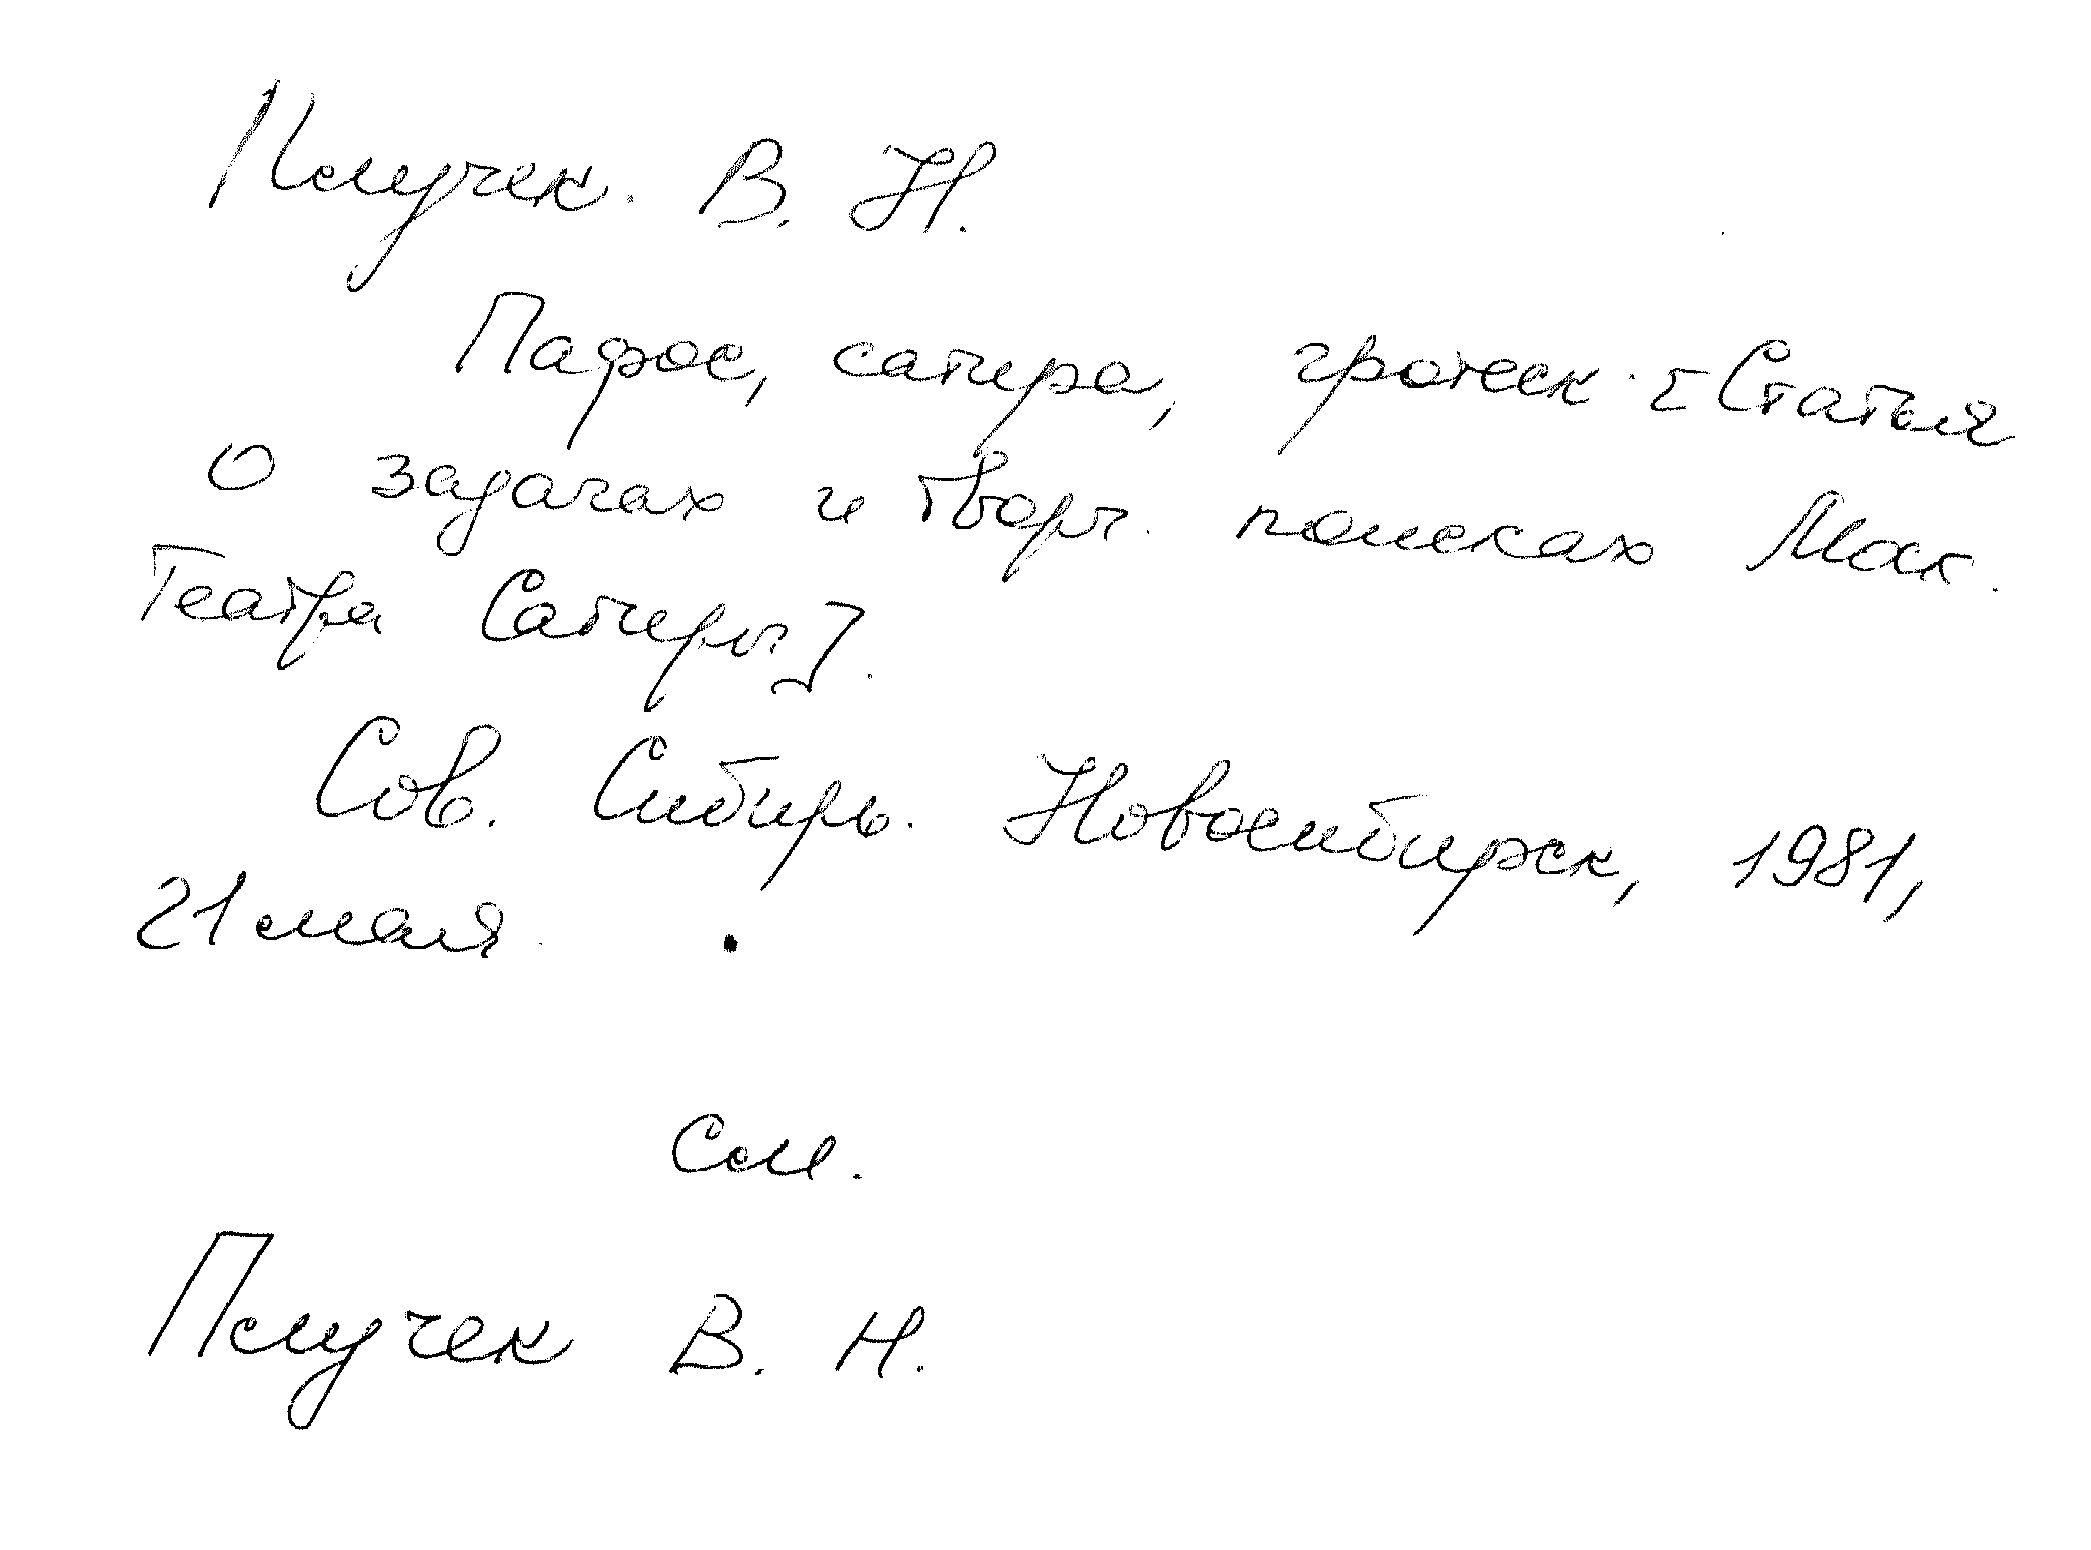 Плучек. В. Н.
Пафос, сатира, гротеск. [Статья
о задачах и творч. поисках Моск.
Театра Сатиры].
Сов. Сибирь. Новосибирск, 1981,
21 мая.
См.
Плучек В. Н.